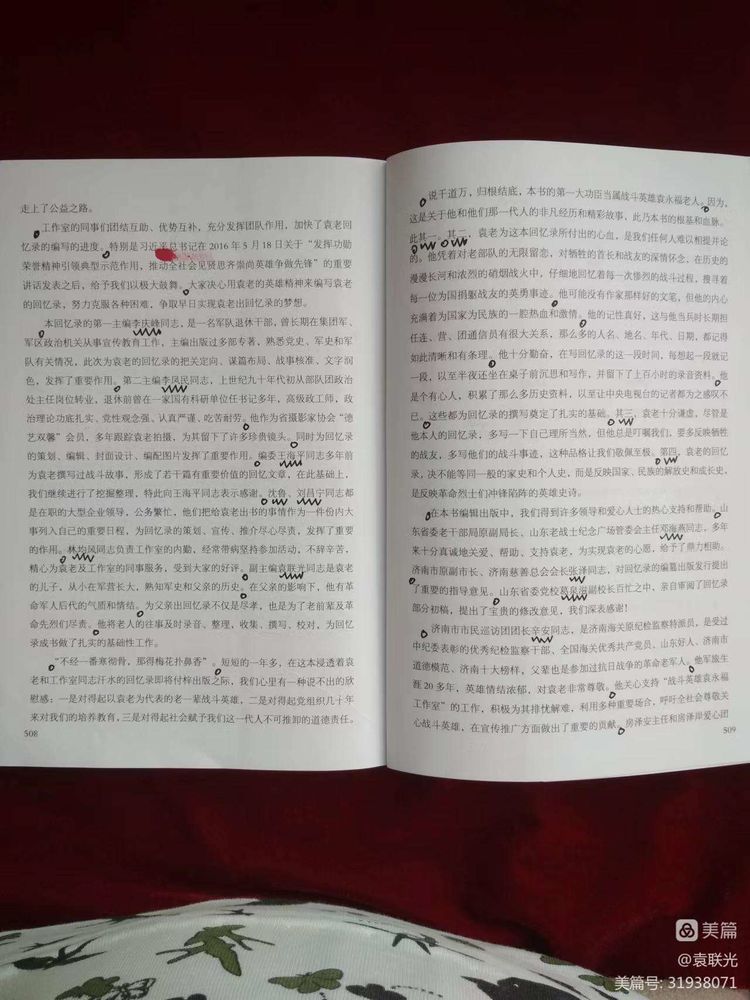 走上了公益之路。
工作室的同事们团结互助、优势互补，充分发挥团队作用，加快了袁老
回忆录的编写的进度。特别是习近平总书记在 2016 年 5 月 18 日关于“发挥功勋
荣誉精神引领典型示范作用，推动全社会见贤思齐崇尚英雄争做先锋”的重要
讲话发表之后，给予我们以极大鼓舞。大家决心用袁老的英雄精神来编写袁老
的回忆录，努力克服各种困难，争取早日实现袁老出回忆录的梦想。
本回忆录的第一主编李庆峰同志，是一名军队退休干部，曾长期在集团军、
军区政治机关从事宣传教育工作，主编出版过多部专著，熟悉党史、军史和军
队有关情况，此次为袁老的回忆录的把关定向、谋篇布局、战事核准、文字润
色，发挥了重要作用。第二主编李凤民同志，上世纪九十年代初从部队团政治
处主任岗位转业，退休前曾在一家国有科研单位任书记多年，高级政工师，政
治理论功底扎实、党性观念强、认真严谨、吃苦耐劳。他作为省摄影家协会“德
艺双馨”会员，多年跟踪袁老拍摄，为其留下了许多珍贵镜头。同时为回忆录
的策划、编辑、封面设计、编配图片发挥了重要作用。编委王海平同志多年前
为袁老撰写过战斗故事，形成了若干篇有重要价值的回忆文章，在此基础上，
我们继续进行了挖掘整理，特此向王海平同志表示感谢。沈鲁、刘昌宁同志都
是在职的大型企业领导，公务繁忙，他们把给袁老出书的事情作为一件份内大
事列入自己的重要日程，为回忆录的策划、宣传、推介尽心尽责，发挥了重要
的作用。林均凤同志负责工作室的内勤，经常带病坚持参加活动，不辞辛苦，
精心为袁老及工作室的同事服务，受到大家的好评。副主编袁联光同志是袁老
的儿子，从小在军营长大，熟知军史和父亲的历史。在父亲的影响下，他有革
命军人后代的气质和情结。为父亲出回忆录不仅是尽孝，也是为了老前辈及革
命先烈们尽责。他将老人的往事及时录音、整理，收集、撰写、校对，为回忆
录成书做了扎实的基础性工作。
“不经一番寒彻骨，那得梅花扑鼻香”。短短的一年多，在这本浸透着袁
老和工作室同志汗水的回忆录即将付梓出版之际，我们心里有一种说不出的欣
慰感：一是对得起以袁老为代表的老一辈战斗英雄，二是对得起党组织几十年
来对我们的培养教育，三是对得起社会赋予我们这一代人不可推卸的道德责任。
508
说千道万，归根结底，本书的第一大功臣当属战斗英雄袁永福老人。因为，
这是关于他和他们那一代人的非凡经历和精彩故事，此乃本书的根基和血脉。
此其一。其二，袁老为这本回忆录所付出的心血，是我们任何人难以相提并论
的。他凭着对老部队的无限留恋，对牺牲的首长和战友的深情怀念，在历史的
漫漫长河和浓烈的硝烟战火中，仔细地回忆着每一次惨烈的战斗过程，搜寻着
每一位为国捐躯战友的英勇事迹。他可能没有作家那样好的文笔，但他的内心
充满着为国家为民族的一腔热血和激情。他的记性真好，这与他当兵时长期担
任连、营、团通信员有很大关系，那么多的人名、地名、年代、日期，都记得
如此清晰和有条理。他十分勤奋，在写回忆录的这一段时间，每想起一段就记
一段，以至半夜还坐在桌子前沉思和写作，并留下了上百小时的录音资料。他
是个有心人，积累了那么多历史资料，以至让中央电视台的记者都为之感叹不
已。这些都为回忆录的撰写奠定了扎实的基础。其三，袁老十分谦虚，尽管是
他本人的回忆录，多写一下自己理所当然，但他总是叮嘱我们，要多反映牺牲
的战友，多写他们的战斗事迹，这种品格让我们敬佩至极。第四，袁老的回忆
录，决不能等同一般的家史和个人史，而是反映国家、民族的解放史和成长史，
是反映革命烈士们冲锋陷阵的英雄史诗。
在本书编辑出版中，我们得到许多领导和爱心人士的热心支持和帮助。山
东省委老干部局原副局长、山东老战士纪念广场管委会主任邓海燕同志，多年
来十分真诚地关爱、帮助、支持袁老，为实现袁老的心愿，给予了鼎力相助。
济南市原副市长、济南慈善总会会长张泽同志，对回忆录的编纂出版发行提出
了重要的指导意见。山东省委党校葛泉滋副校长百忙之中，亲自审阅了回忆录
部分初稿，提出了宝贵的修改意见，我们深表感谢！
济南市市民巡访团团长辛安同志，是济南海关原纪检监察特派员，是受过
中纪委表彰的优秀纪检监察干部、全国海关优秀共产党员、山东好人、济南市
道德模范、济南十大榜样，父辈也是参加过抗日战争的革命老军人。他军旅生
涯 20 多年，英雄情结浓郁，对袁老非常尊敬。他关心支持“战斗英雄袁永福
工作室”的工作，积极为其排忧解难，利用多种重要场合，呼吁全社会尊敬关
心战斗英雄，在宣传推广方面做出了重要的贡献。房泽安主任和房泽岸爱心团
509
美篇
@袁联光
美篇号: 31938071